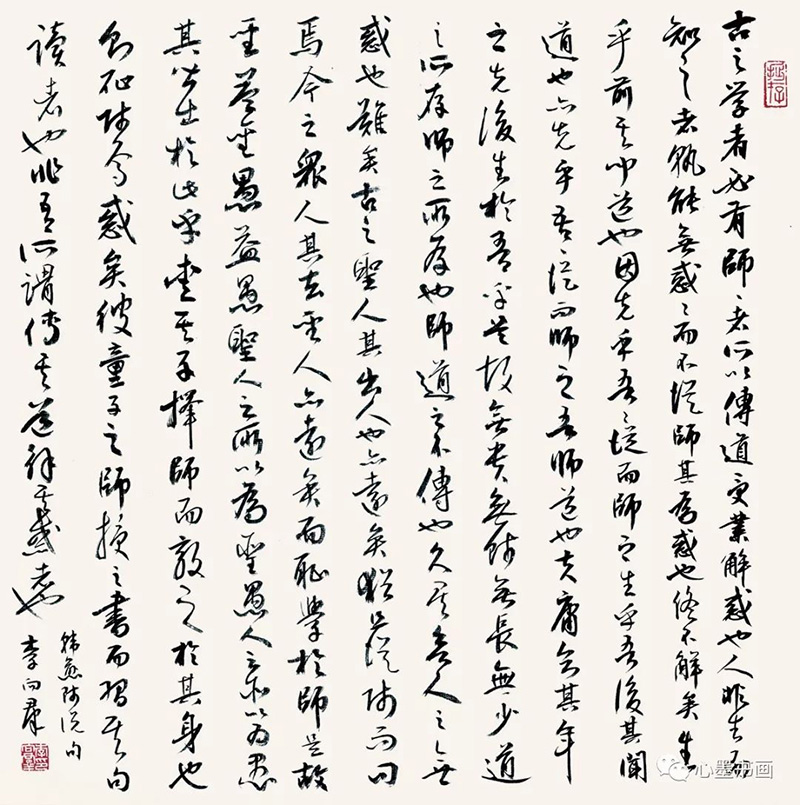 古之学者必有師者所以傳道受業解惑也人非生而
知之者孰能無惑〻而不從師其為惑也終不解矣生
乎前其聞道也固先乎吾〻從而師之生乎吾後其聞
道也亦先乎吾〻從而師之吾師道也夫庸知其年
之先後生於吾乎是故無貴無賤無長無少道
之所存師之所存也師道之不傳也久矣欲人之無
惑也難矣古之聖人其出人也亦遠矣猶且從師而問
焉今之眾人其去聖人亦遠矣而恥學於師是故
聖益聖愚益愚聖人之所以為聖愚人之所以為愚
其皆出於此乎愛其子擇師而教之於其身也
則恥師焉惑矣彼童子之師授之書而習其句
讀者也非吾所謂傳其道解其惑者也
韓愈師說句
李向群
心墨书画